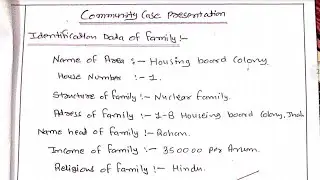 Community Case Presentation
Identification Data of family :-
Name of Area :- Housing board Colony
House Number :- 1.
Structure of family :- Nuclear family.
Adress of family :- 1-B Houseing board Colony,
Name head of family :- Rohan.
Income of family :- 350000 per Annum.
Religious of family :- Hindu.